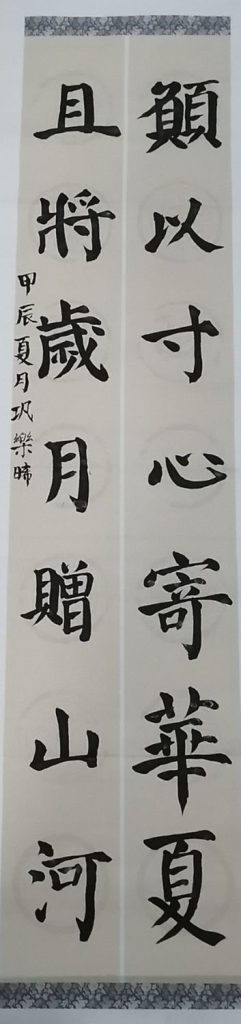 願以寸心寄華夏
且將歲月贈山河
甲辰夏月巩樂晞